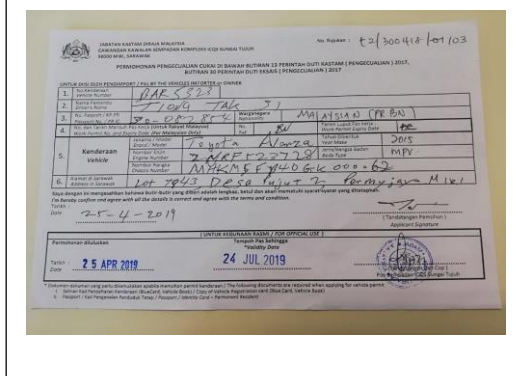 No. Rujukan : t2/300418/01/03
JABATAN KASTAM DIRAJA MALAYSIA
CAWANGAN KAWALAN SEMPADAN KOMPLEKS ICQS SUNGAI TUJUH
98000 MIRI, SARAWAK
PERMOHONAN PENGECUALIAN CUKAI DI BAWAH BUTIRAN 13 PERINTAH DUTI KASTAM ( PENGECUALIAN ) 2017,
BUTIRAN 30 PERINTAH DUTI EKSAIS ( PENGECUALIAN ) 2017
UNTUK DIISI OLEH PENGIMPORT / FILL BY THE VEHICLES IMPORTER or OWNER
1. No.Kenderaan Vehicle Number BAR 5323
2. Nama Pemandu Drivers Name Tiong Tak Si
3. No. Passport / KP.PR Passport No. / PR.IC Warganegara Nationality MALAYSIAN (PR BN)
4. No. dan Tarikh Masuk Pas Kerja (Untuk Rakyat Malaysia) Work Permit No. and Expiry Date (For Malaysian Only) No Tarikh Luput Pas Kerja : Work Permit Expiry Date
5. Kenderaan Vehicle
Jenama / Model Brand / Model Toyota Avanza Tahun Dibuat Year Make 2015
Nombor Enjin Engine Number 2NRF523728 Jenis/Bangsa Badan Body Type MPV
Nombor Rangka Chassis Number
6. Alamat di Sarawak Address in Sarawak Lot 7843 Desa Pujut 2 Permyjaya Miri
Saya dengan ini mengesahkan bahawa butir-butir yang diberi adalah lengkap, betul dan akan mematuhi syarat-syarat yang ditetapkan.
I'm hereby confirm and agree with all the details is correct and agree with the terms and condition.
Tarikh : Date 25-4-2019
( Tandatangan Pemohon )
Applicant Signature
( UNTUK KEGUNAAN RASMI / FOR OFFICIAL USE )
Permohonan diluluskan Tempoh Pas Sehingga
*Validity Date
Tarikh : Date 25 APR 2019 24 JUL 2019
( Tandatangan dan Cop )
* Dokumen-dokumen yang perlu dikemukakan apabila memohon permit kenderaan / The following documents are required when applying for vehicle permit